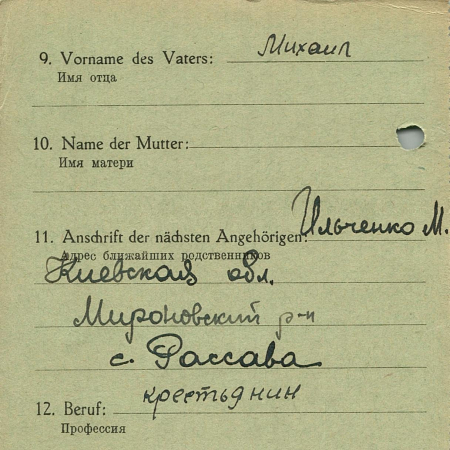 9. Vorname des Vaters: Михаил
Имя отца
10. Name der Mutter:
Имя матери
Ильченко М.
11. Anschrift der nächsten Angehörigen:
Адрес ближайших родственников
Киевская обл.
Мироновский р-н
с. Россава
крестьянин
12. Beruf:
Профессия